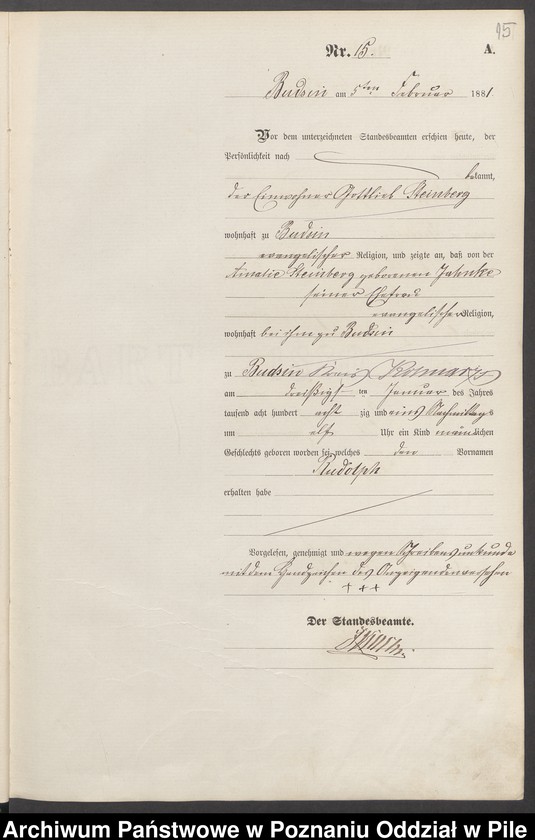 15
Nr. 15. A.
Budsin am 5ten Februar 1881.
Vor dem unterzeichneten Standesbeamten erschien heute, der
Persönlichkeit nach
bekannt,
der Einwohner Gottlieb Steinberg
wohnhaft zu Budsin
evangelischer Religion, und zeigte an, daß von der
Amalie Steinberg geborenen Jahnke
seiner Ehefrau
evangelischer Religion,
wohnhaft bei ihm zu Budsin
zu Budsin Kreis
am dreißigsten Januar des Jahres
tausend acht hundert achtzig und eins Nachmittags
um elf Uhr ein Kind männlichen
Geschlechts geboren worden sei, welches den Vornamen
Rudolph
erhalten habe
Vorgelesen, genehmigt und wegen Schreibensunkunde
mit dem Handzeichen des Anzeigenden versehen
+ + +
Der Standesbeamte.
Archiwum Państwowe w Poznaniu Oddział w Pile